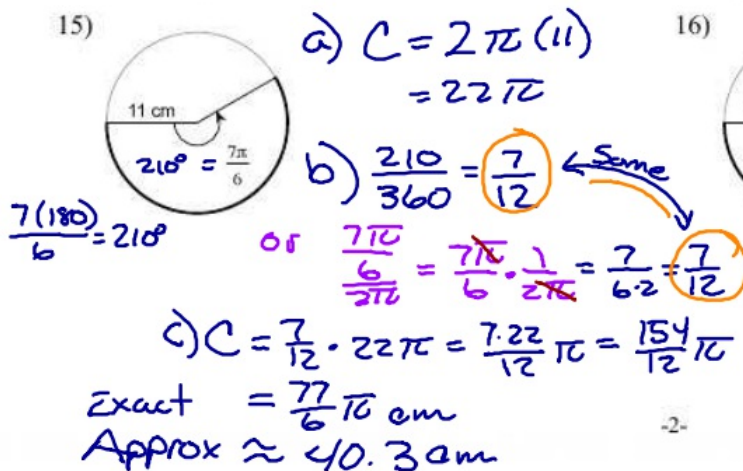 15)
16)
a) C = 2π(11)
= 22π
11 cm
210° = 7π/6
7(180)/6 = 210°
b) 210/360 = 7/12
Same
or (7π/6)/(2π) = 7π/6 · 1/2π = 7/6·2 = 7/12
c) C = 7/12 · 22π = 7·22/12 π = 154/12 π
Exact = 77/6 π cm
Approx ≈ 40.3 cm
-2-